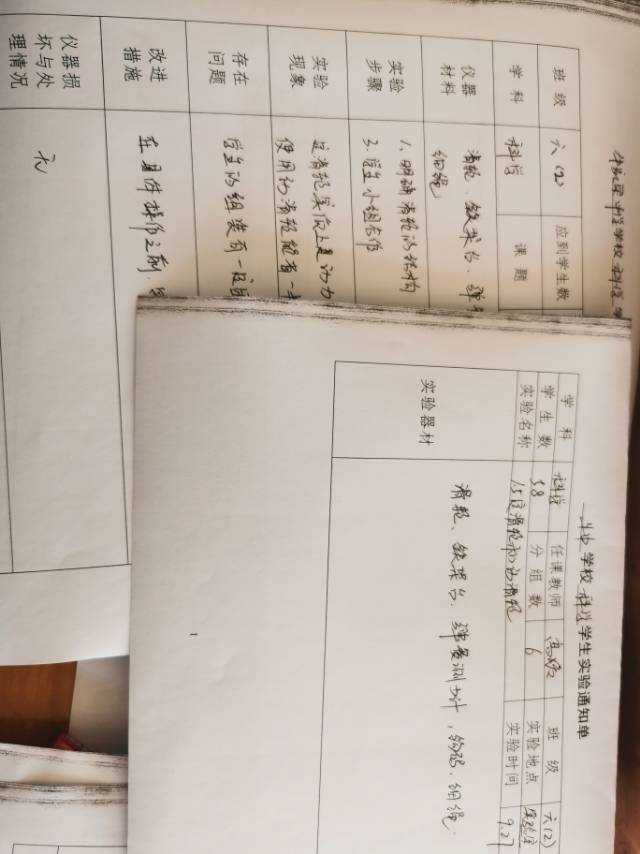 学校 科学 学生实验通知单
学科 科学 任课教师 班级 六(2)
学生数 58 分组数 6 实验地点 实验室
实验名称 15定滑轮和动滑轮 实验时间 9.27
实验器材 滑轮、铁架台、弹簧测力计,钩码、细绳.
1
学校 科学
班级 六(2) 应到学生数
学科 科学 课题
仪器材料 滑轮、铁架台、弹
细绳
实验步骤 1.明确滑轮的结构
3.学生小组合作
实验现象 定滑轮实质上是
使用动滑轮能省一
存在问题 学生的组装有一定
改进措施 在具体操作之前,
仪器损坏与处理情况 无